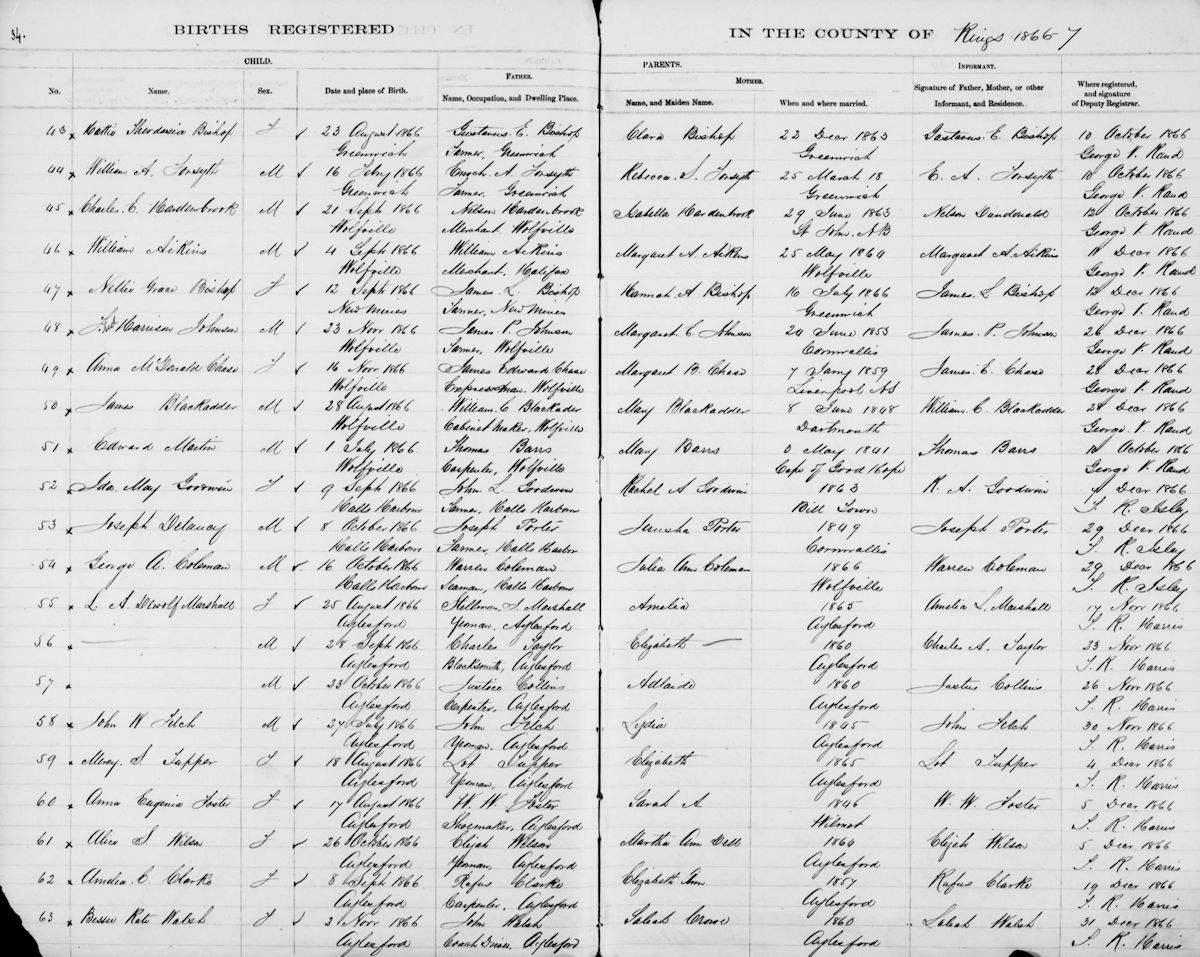 34.
BIRTHS REGISTERED IN THE COUNTY OF Kings 1866-7
CHILD. PARENTS. INFORMANT.
No. Name. Sex. Date and place of Birth. Father. Name, Occupation, and Dwelling Place. Mother. Name, and Maiden Name. When and where married. Signature of Father, Mother, or other Informant, and Residence. Where registered, and signature of Deputy Registrar.
43 x Hattie Theodosia Bishop F ✓ 23 August 1866 Gustavus E. Bishop Clara Bishop 22 Decr 1863 Gustavus E. Bishop 10 October 1866
Greenwich Farmer, Greenwich Greenwich George V. Rand
44 x William A. Forsyth M ✓ 16 Feby 1866 Enoch A. Forsyth Rebecca S. Forsyth 25 March 18 E. A. Forsyth 10 October 1866
Greenwich Farmer, Greenwich Greenwich George V. Rand
45 x Charles C. Hardenbrook M ✓ 21 Sept 1866 Nelson Hardenbrook Isabella Hardenbrook 29 June 1863 Nelson Dundonald 12 October 1866
Wolfville Merchant, Wolfville St John, NB George V. Rand
46 x William Aitkins M ✓ 4 Sept 1866 William Aitkins Margaret A. Aitkins 25 May 1864 Margaret A. Aitkins 11 Decr 1866
Wolfville Merchant, Halifax Wolfville George V. Rand
47 x Nellie Grace Bishop F ✓ 12 Sept 1866 James L. Bishop Hannah A Bishop 16 July 1866 James L Bishop 13 Decr 1866
New Minas Farmer, New Minas Greenwich George V. Rand
48 x Harrison Johnson M ✓ 23 Novr 1866 James P. Johnson Margaret C Johnson 24 June 1853 James P. Johnson 26 Decr 1866
Wolfville Farmer, Wolfville Cornwallis George V. Rand
49 x Anna McDonald Chase F ✓ 16 Novr 1866 James Edward Chase Margaret B. Chase 7 Jany 1859 James E. Chase 28 Decr 1866
Wolfville Expressman, Wolfville Liverpool NS George V. Rand
50 x James Blackadder M ✓ 28 August 1866 William C Blackader Mary Blackadder 8 June 1848 William C. Blackadder 28 Decr 1866
Wolfville Cabinet Maker, Wolfville Dartmouth George V. Rand
51 x Edward Martin M ✓ 1 July 1866 Thomas Barrs Mary Barrs 3 May 1841 Thomas Barrs 10 October 1866
Wolfville Carpenter, Wolfville Cape of Good Hope George V. Rand
52 x Ida May Goodwin F ✓ 9 Sept 1866 John L. Goodwin Rachel A Goodwin 1863 R. A. Goodwin Decr 1866
Halls Harbour Farmer, Halls Harbour Bill Town S. R. Isley
53 x Joseph Delancy M ✓ 8 October 1866 Joseph Porter Jerusha Porter 1849 Joseph Porter 29 Decr 1866
Halls Harbour Farmer, Halls Harbor Cornwallis S. R. Isley
54 x George A. Coleman M ✓ 16 October 1866 Warren Coleman Julia Ann Coleman 1866 Warren Coleman 29 Decr 1866
Halls Harbour Seaman, Halls Harbour Wolfville S. R. Isley
55 x L. A. Dewolf Marshall F ✓ 25 August 1866 Stillman S. Marshall Amelia 1865 Amelia L. Marshall 17 Novr 1866
Aylesford Yeoman, Aylesford Aylesford S. R. Harris
56 x — M ✓ 28 Sept 1866 Charles Taylor Elizabeth — 1860 Charles A. Taylor 23 Novr 1866
Aylesford Blacksmith, Aylesford Aylesford S. R. Harris
57 x M ✓ 23 October 1866 Justice Collins Adlaide 1860 Justus Collins 26 Novr 1866
Aylesford Carpenter, Aylesford Aylesford S. R. Harris
58 x John W Fitch M ✓ 27 July 1866 John Fitch Lydia 1845 John Fitch 30 Novr 1866
Aylesford Yeoman, Aylesford Aylesford S. R. Harris
59 x Mercy S. Tupper F ✓ 18 August 1866 Lot Tupper Elizabeth 1865 Lot Tupper 4 Decr 1866
Aylesford Yeoman, Aylesford Aylesford S. R. Harris
60 x Anna Eugenia Foster F ✓ 17 August 1866 W. W. Foster Sarah A 1846 W. W. Foster 5 Decr 1866
Aylesford Shoemaker, Aylesford Wilmot S. R. Harris
61 x Alice S. Wilson F ✓ 26 October 1866 Elijah Wilson Martha Ann 1864 Elijah Wilson 5 Decr 1866
Aylesford Yeoman, Aylesford Aylesford S. R. Harris
62 x Amelia C. Clarke F ✓ 8 Sept 1866 Rufus Clarke Elizabeth Ann 1857 Rufus Clarke 19 Decr 1866
Aylesford Carpenter, Aylesford Aylesford S. R. Harris
63 x Bessie Kate Walsh F ✓ 2 Novr 1866 John Walsh Crowe 1860 Walsh 31 Decr 1866
Aylesford Coach Driver, Aylesford Aylesford S. R. Harris